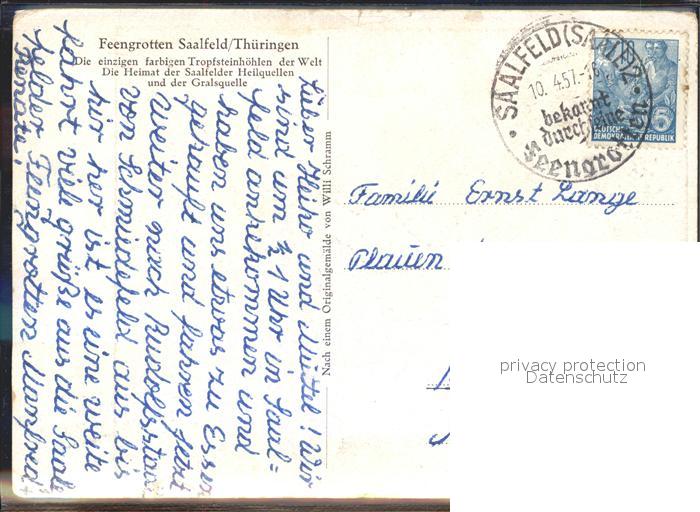 Feengrotten Saalfeld/Thüringen
Die einzigen farbigen Tropfsteinhöhlen der Welt
Die Heimat der Saalfelder Heilquellen
und der Gralsquelle
Lieber Heiho und Mutel! Wir
sind um ½ 1 Uhr in Saal=
feld angekommen und
haben uns etwas zu Essen
gekauft und fahren jetzt
weiter nach Rudolfstadt
von Schmiedefeld aus bis
hir her ist es eine weite
fahrt viel grüße aus die Saal
felder Feengrotten Manfred+
Renate!
Nach einem Originalgemälde von Willi Schramm
SAALFELD (SAALE) 2
10. 4. 57.-18
bekannt
durch seine
Feengrotten
DEUTSCHE
DEMOKRATISCHE REPUBLIK
5
Familie Ernst Lange
Plauen
privacy protection
Datenschutz